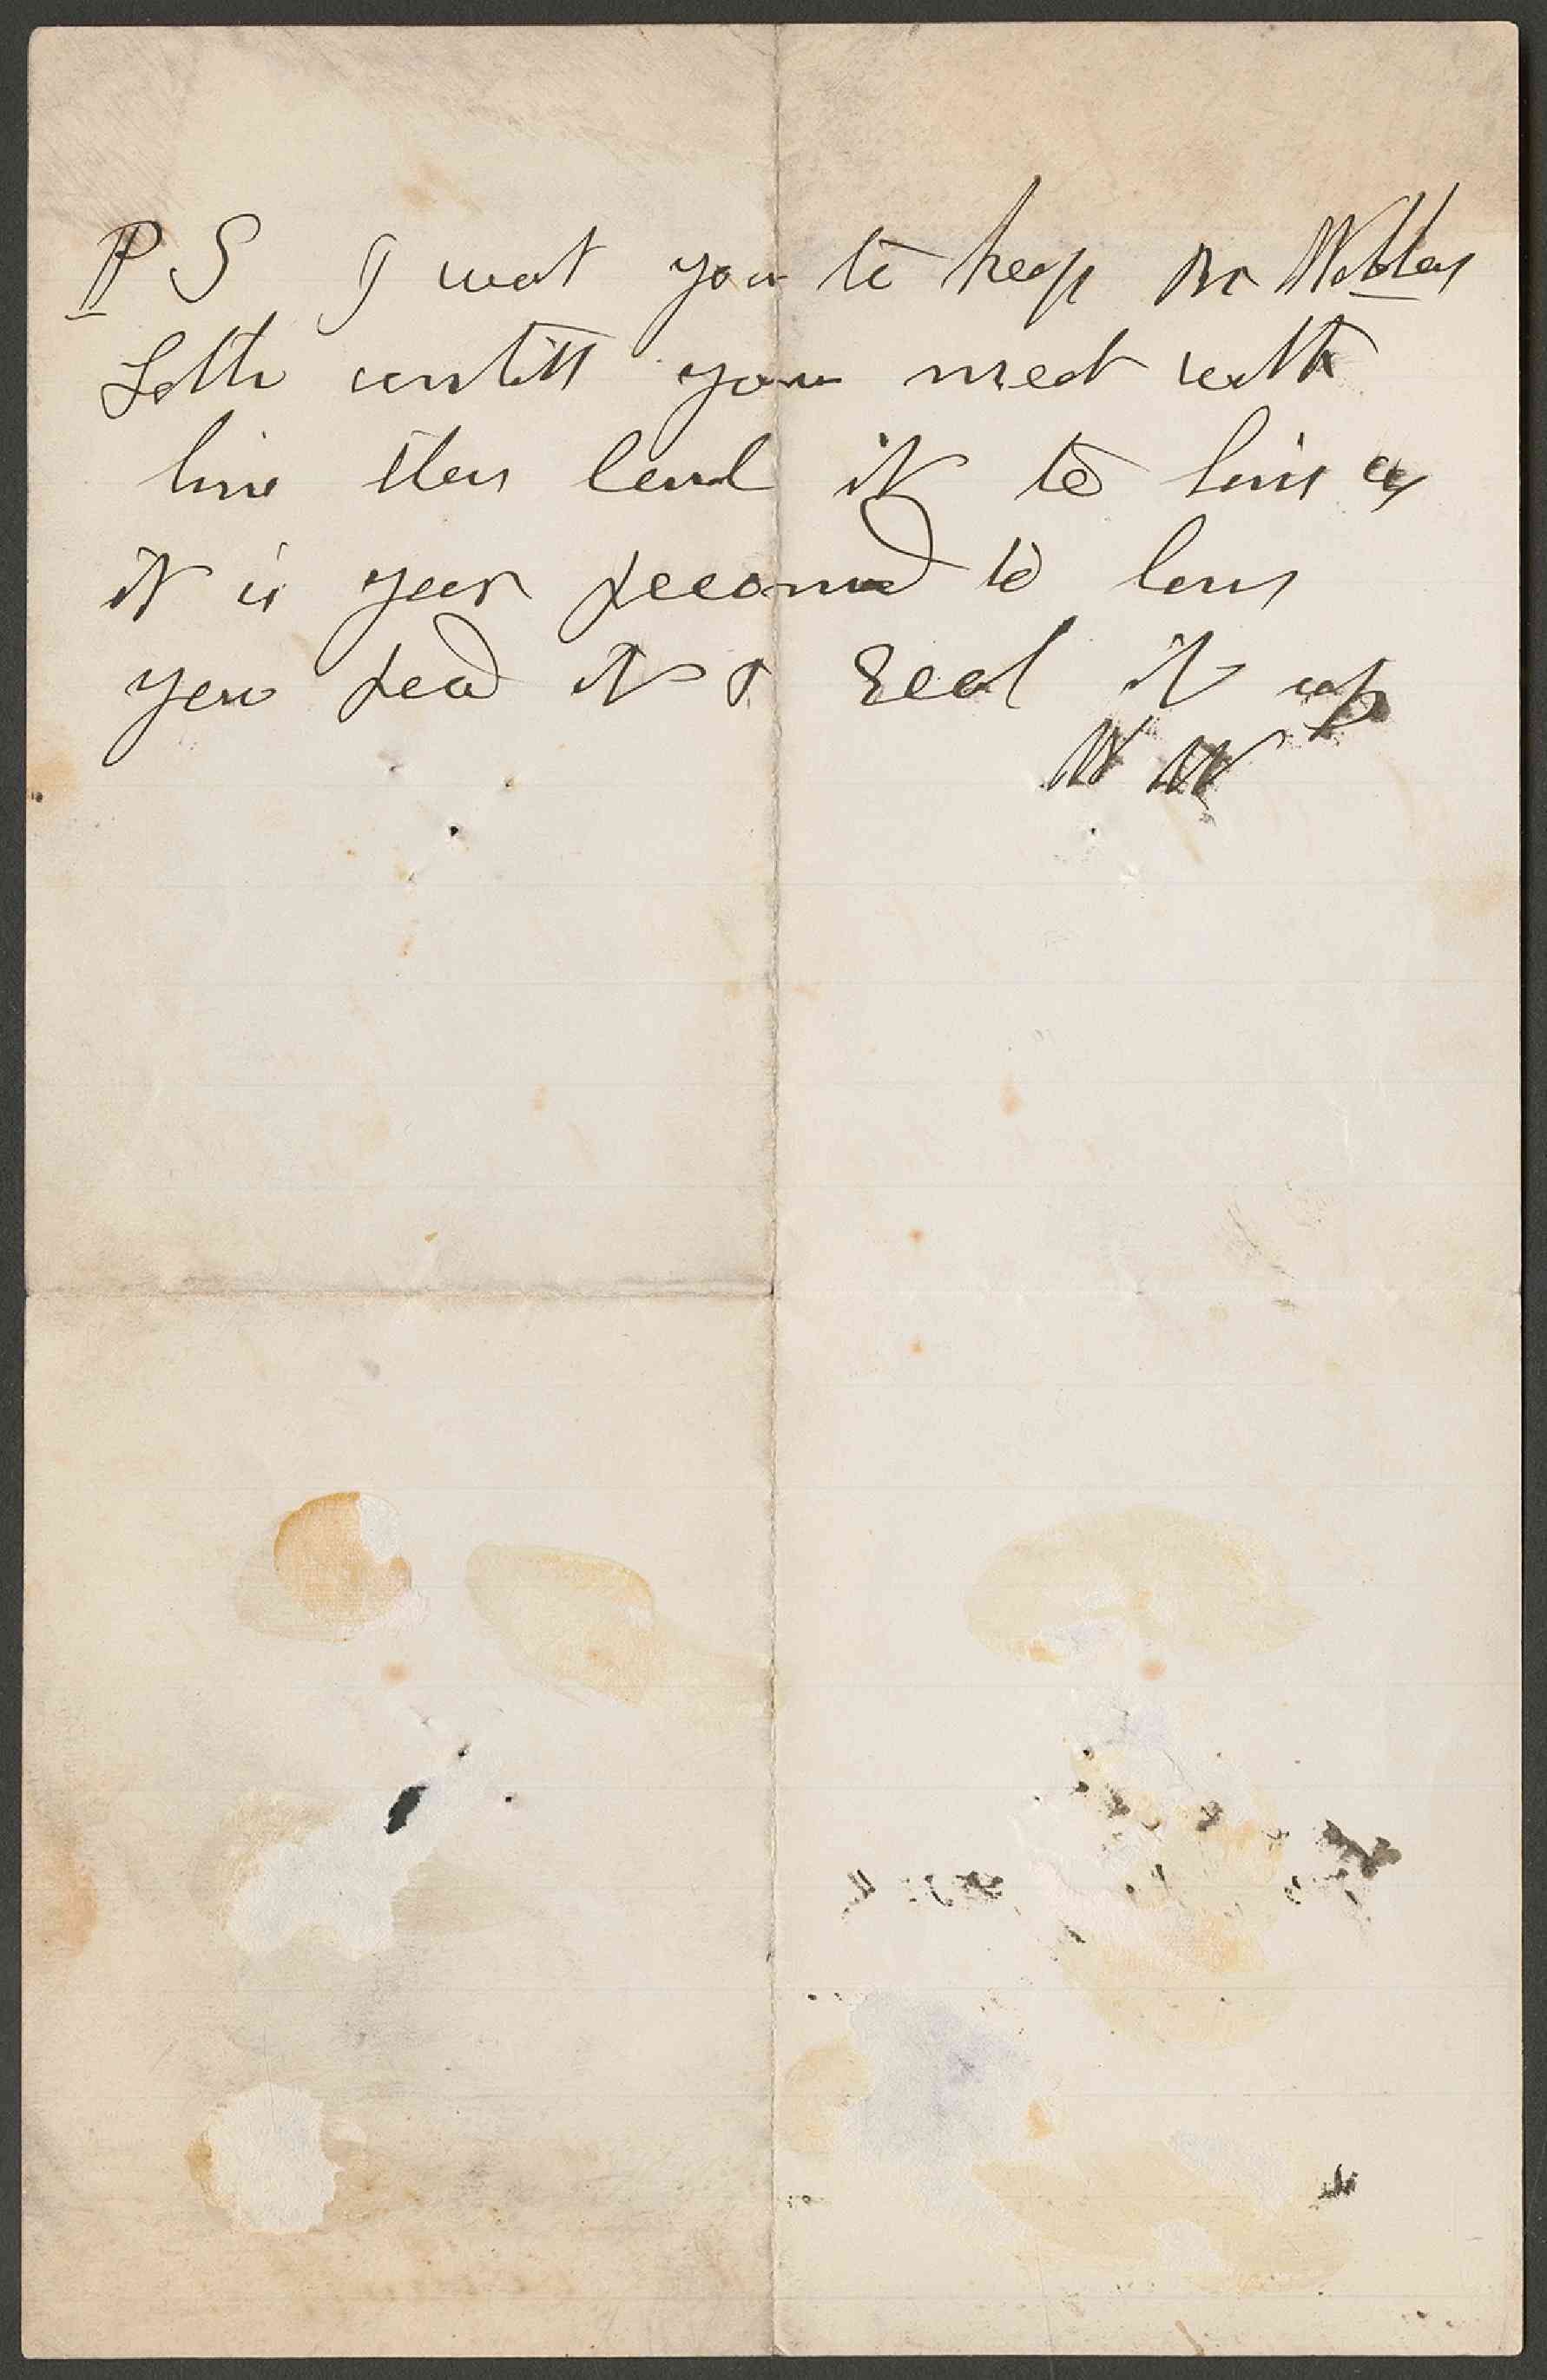 P S I want you to keep Mr
Letter untill you meet with
him then hand it to him as
it is your recomend to him
you read it & seal it up
W W